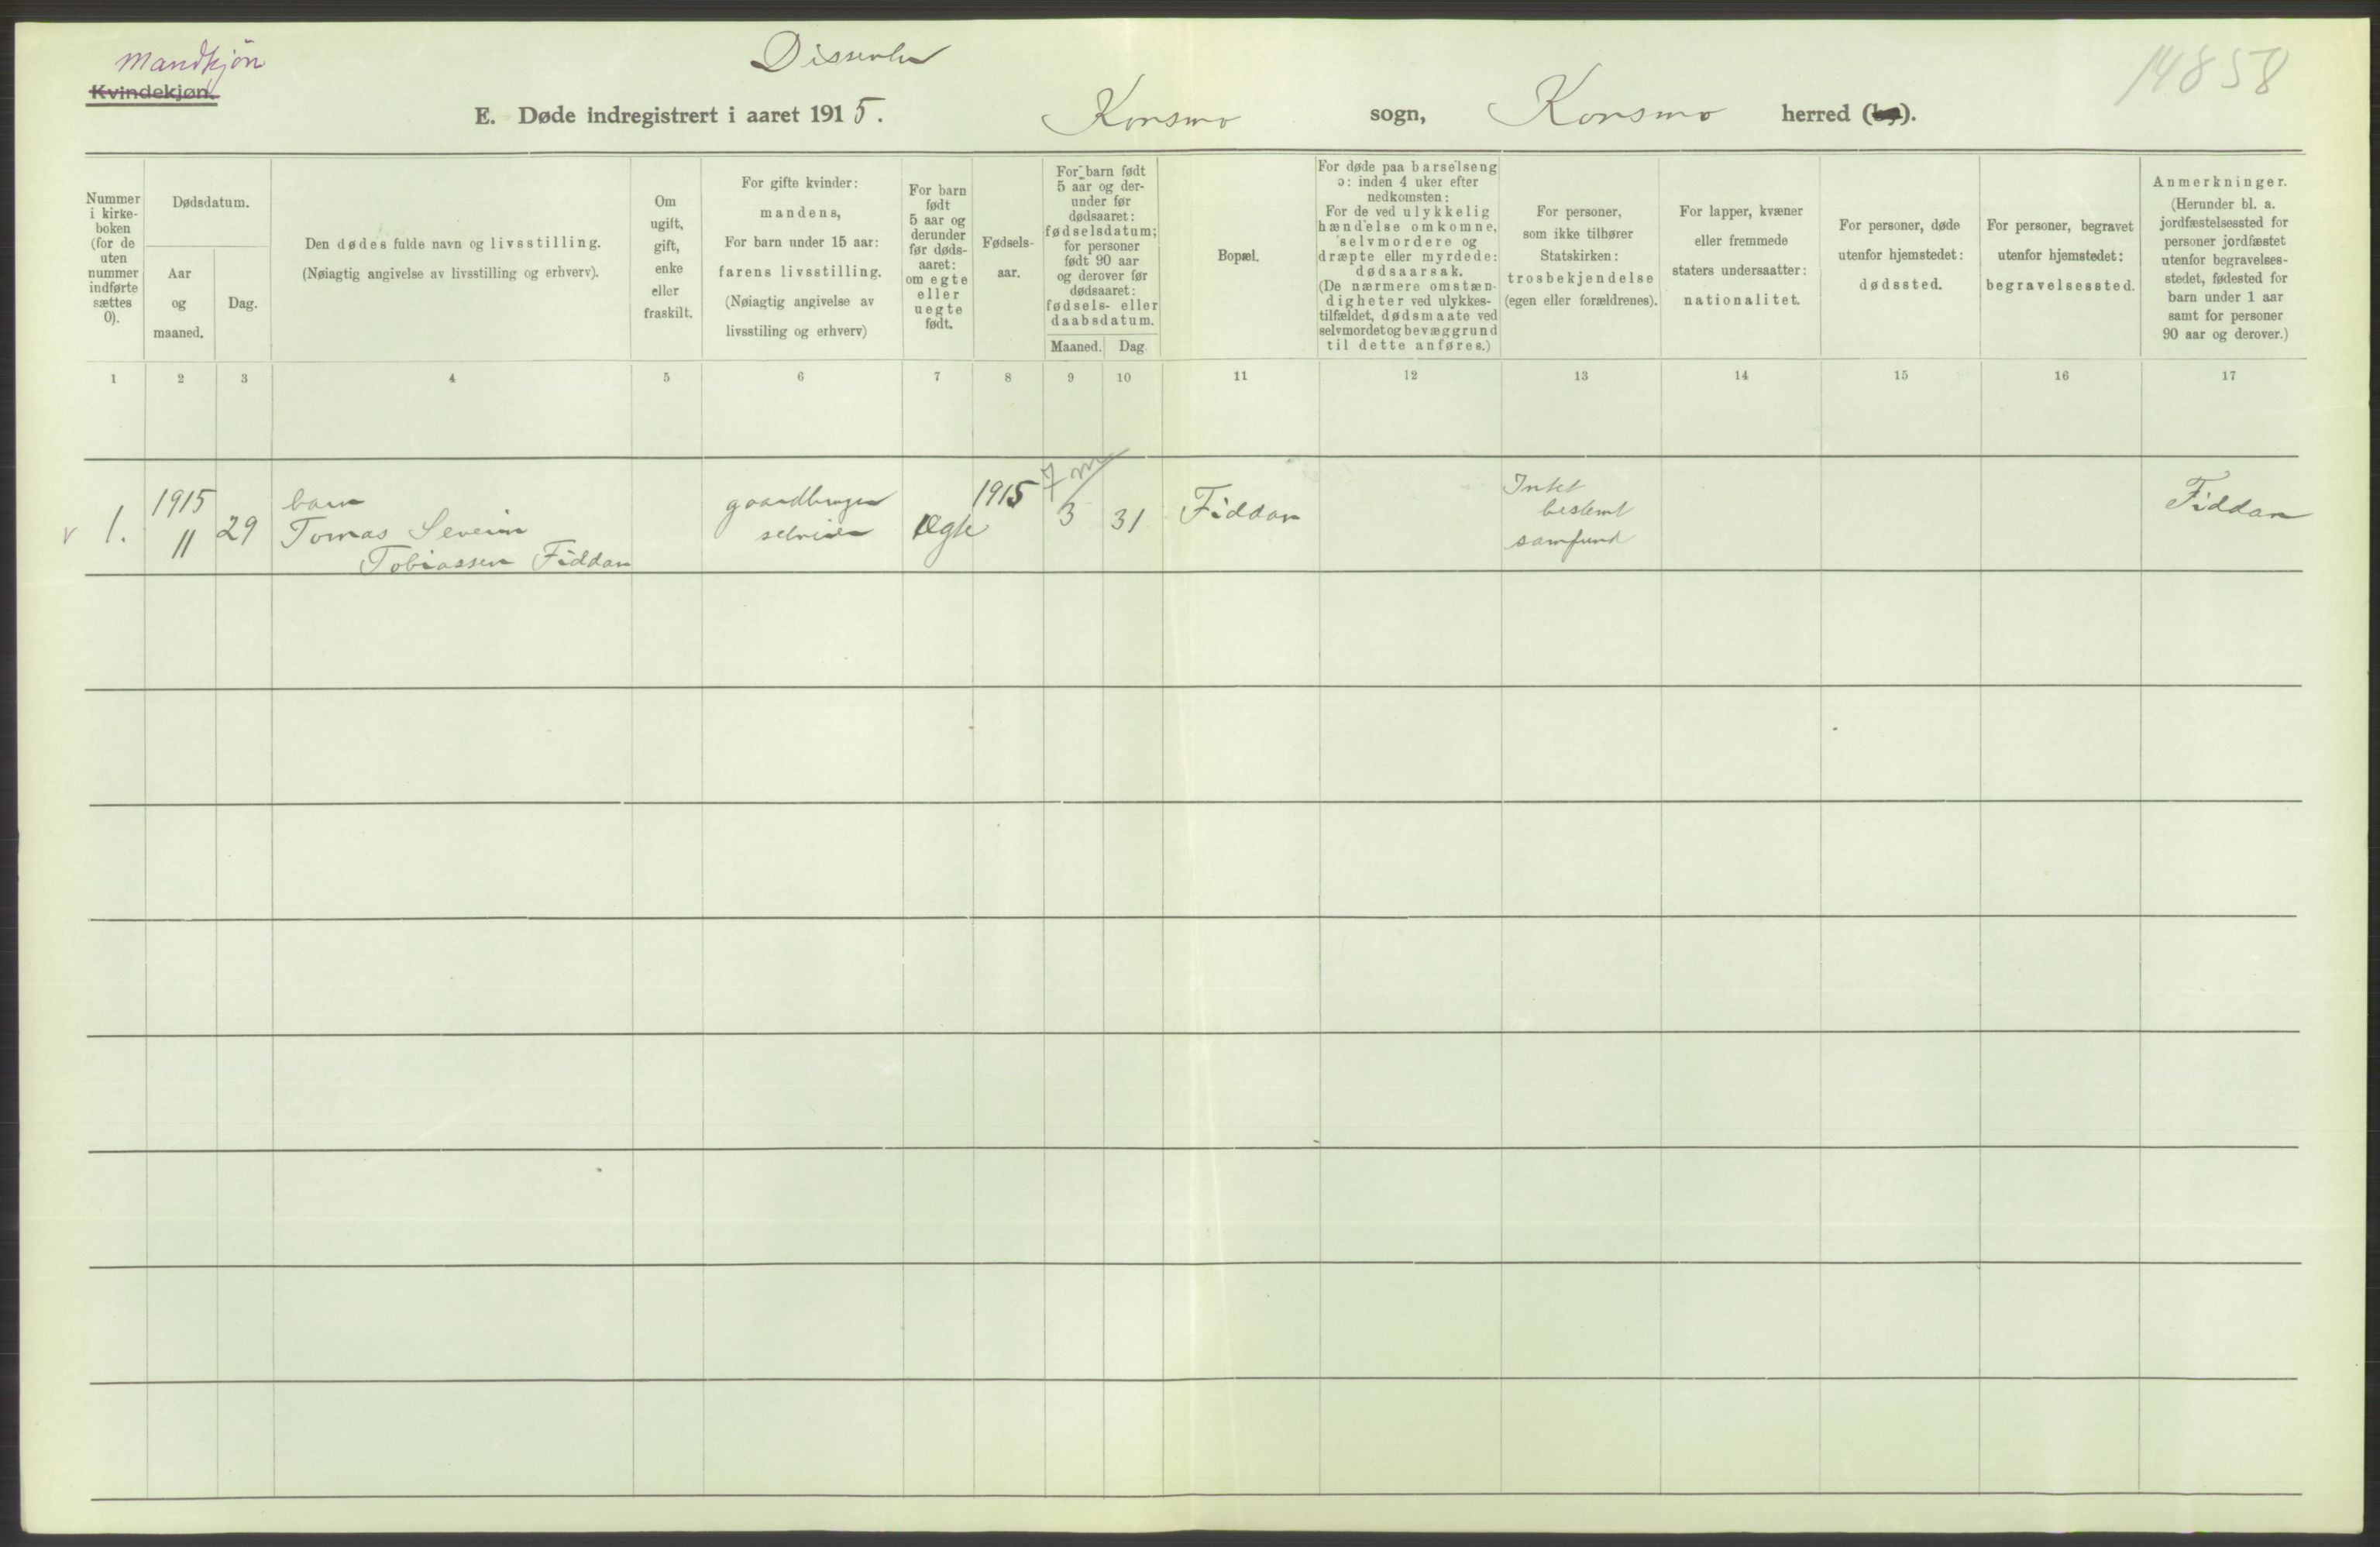 Mandkjøn
Kvindekjøn.
Dissenter
14858
E. Døde indregistrert i aaret 1915.
Konsmo sogn, Konsmo herred (by).
Nummer
i kirke-
boken
(for de
uten
nummer
indførte
sættes
0).
Dødsdatum.
Aar
og
maaned.
Dag.
Den dødes fulde navn og livsstilling.
(Nøiagtig angivelse av livsstilling og erhverv).
Om
ugift,
gift,
enke
eller
fraskilt.
For gifte kvinder:
mandens,
For barn under 15 aar:
farens livsstilling.
(Nøiagtig angivelse av
livsstiling og erhverv)
For barn
født
5 aar og
derunder
før døds-
aaret:
om egte
eller
uegte
født.
Fødsels-
aar.
For barn født
5 aar og der-
under før
dødsaaret:
fødselsdatum;
for personer
født 90 aar
og derover før
dødsaaret:
fødsels- eller
daabsdatum.
Maaned. Dag.
Bopæl.
For døde paa barselseng
ɔ: inden 4 uker efter
nedkomsten:
For de ved ulykkelig
hændelse omkomne,
selvmordere og
dræpte eller myrdede:
dødsaarsak.
(De nærmere omstæn-
digheter ved ulykkes-
tilfældet, dødsmaate ved
selvmordet og bevæggrund
til dette anføres.)
For personer,
som ikke tilhører
Statskirken:
trosbekjendelse
(egen eller forældrenes).
For lapper, kvæner
eller fremmede
staters undersaatter:
nationalitet.
For personer, døde
utenfor hjemstedet:
dødssted.
For personer, begravet
utenfor hjemstedet:
begravelsessted.
Anmerkninger.
(Herunder bl. a.
jordfæstelsessted for
personer jordfæstet
utenfor begravelses-
stedet, fødested for
barn under 1 aar
samt for personer
90 aar og derover.)
1 2 3 4 5 6 7 8 9 10 11 12 13 14 15 16 17
v 1.
1915
11
29
barn
Tomas Severin
Tobiassen Fiddan
gaardbruger
selveier
Ægte
1915
7 m
3
31
Fiddan
Intet
bestemt
samfund
Fiddan